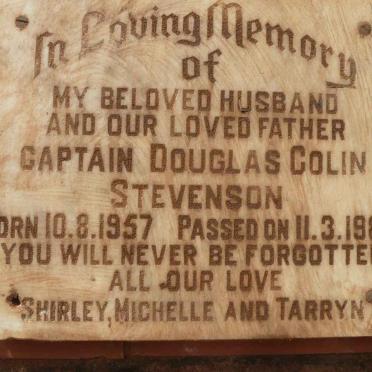 In Loving Memory
of
MY BELOVED HUSBAND
AND OUR LOVED FATHER
CAPTAIN DOUGLAS COLIN
STEVENSON
ORN 10.8.1957 PASSED ON 11.3.198
YOU WILL NEVER BE FORGOTTE
ALL OUR LOVE
SHIRLEY, MICHELLE AND TARRYN